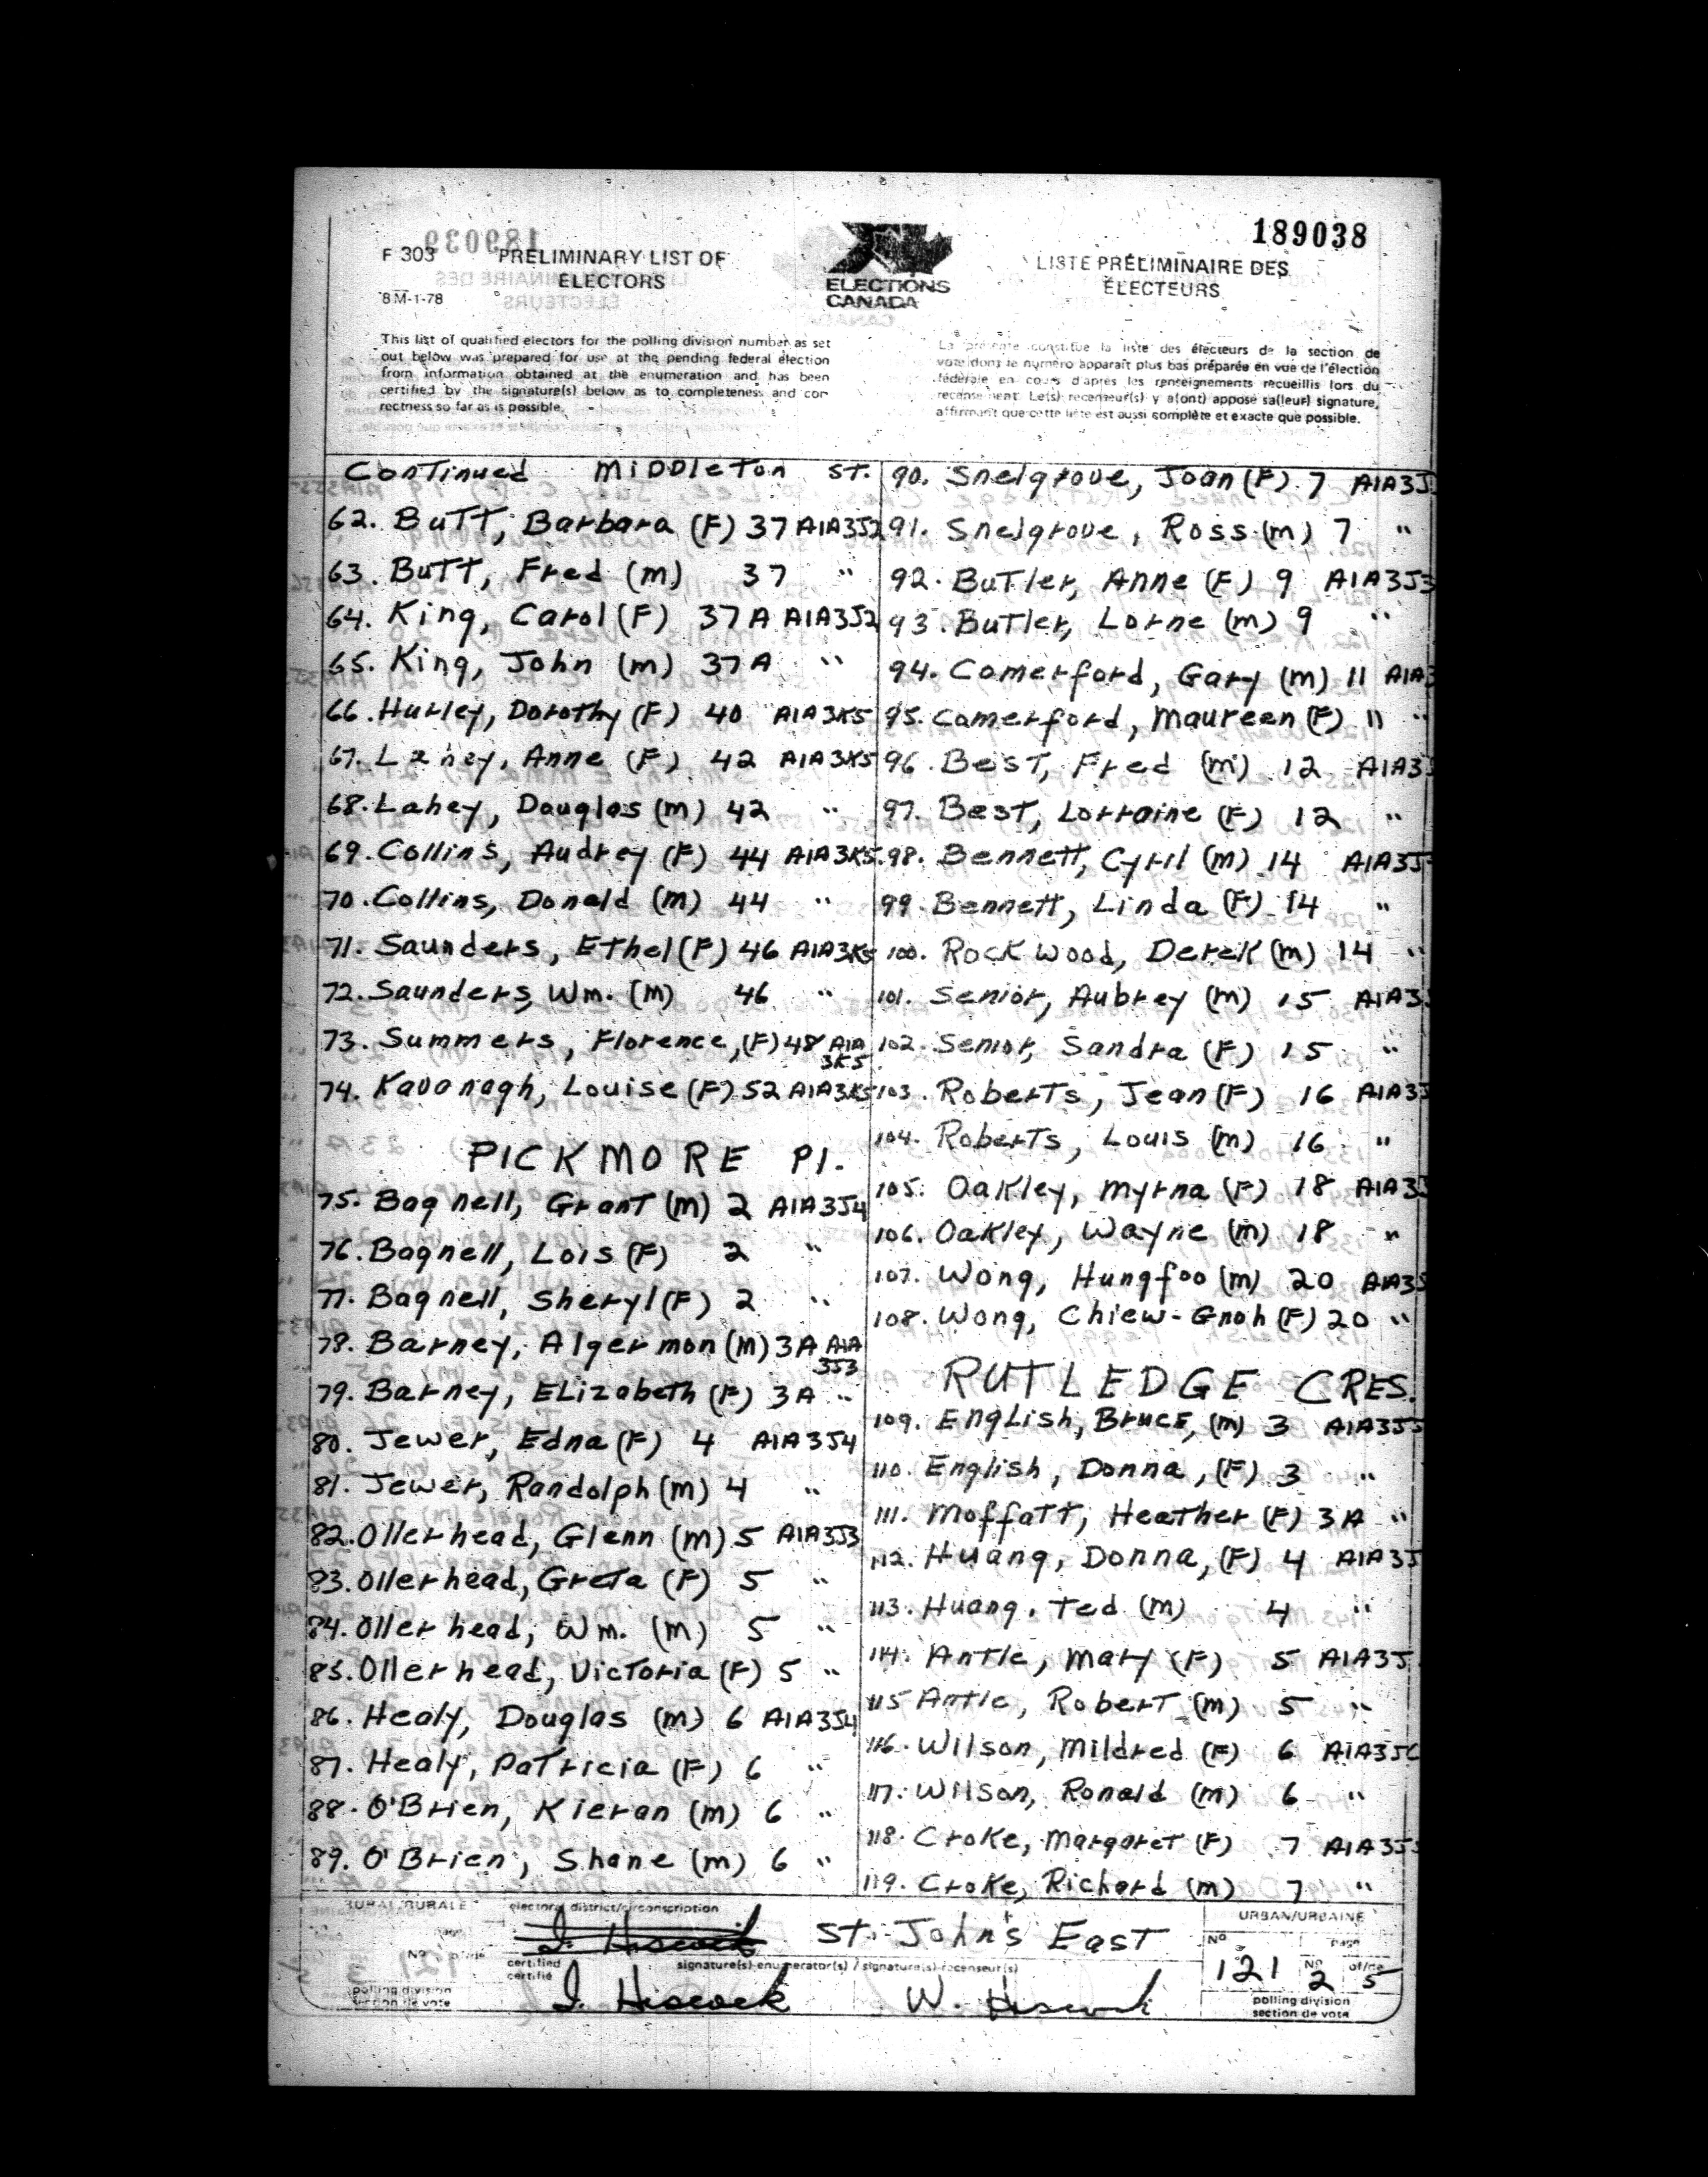 189038
F 303
PRELIMINARY LIST OF
ELECTORS
8M-1-78
ELECTIONS
CANADA
LISTE PRÉLIMINAIRE DES
ÉLECTEURS
This list of qualified electors for the polling division number as set
out below was prepared for use at the pending federal election
from information obtained at the enumeration and has been
certified by the signature(s) below as to completeness and cor-
rectness so far as is possible.
La présente constitue la liste des électeurs de la section de
vote dont le numéro apparaît plus bas préparée en vue de l'élection
fédérale en cours d'après les renseignements recueillis lors du
recensement. Le(s) recenseur(s) y a(ont) apposé sa(leur) signature,
affirmant que cette liste est aussi complète et exacte que possible.
Continued Middleton St.
62. Butt, Barbara (F) 37 A1A3J2
63. Butt, Fred (M) 37 "
64. King, Carol (F) 37A A1A3J2
65. King, John (M) 37A "
66. Hurley, Dorothy (F) 40 A1A3K5
67. Lahey, Anne (F) 42 A1A3K5
68. Lahey, Douglas (M) 42 "
69. Collins, Audrey (F) 44 A1A3K5
70. Collins, Donald (M) 44 "
71. Saunders, Ethel (F) 46 A1A3K5
72. Saunders, Wm. (M) 46 "
73. Summers, Florence, (F) 48 A1A
3K5
74. Kavanagh, Louise (F) 52 A1A3K5
PICKMORE Pl.
75. Bagnell, Grant (M) 2 A1A3J4
76. Bagnell, Lois (F) 2 "
77. Bagnell, Sheryl (F) 2 "
78. Barney, Algermon (M) 3A A1A
3J3
79. Barney, Elizabeth (F) 3A "
80. Jewer, Edna (F) 4 A1A3J4
81. Jewer, Randolph (M) 4 "
82. Ollerhead, Glenn (M) 5 A1A3J3
83. Ollerhead, Greta (F) 5 "
84. Ollerhead, Wm. (M) 5 "
85. Ollerhead, Victoria (F) 5 "
86. Healy, Douglas (M) 6 A1A3J4
87. Healy, Patricia (F) 6 "
88. O'Brien, Kieran (M) 6 "
89. O'Brien, Shane (M) 6 "
90. Snelgrove, Joan (F) 7 A1A3J
91. Snelgrove, Ross (M) 7 "
92. Butler, Anne (F) 9 A1A3J3
93. Butler, Lorne (M) 9 "
94. Comerford, Gary (M) 11 A1A3
95. Comerford, Maureen (F) 11 "
96. Best, Fred (M) 12 A1A3J
97. Best, Lorraine (F) 12 "
98. Bennett, Cyril (M) 14 A1A3J
99. Bennett, Linda (F) 14 "
100. Rockwood, Derek (M) 14 "
101. Senior, Aubrey (M) 15 A1A3J
102. Senior, Sandra (F) 15 "
103. Roberts, Jean (F) 16 A1A3J
104. Roberts, Louis (M) 16 "
105. Oakley, Myrna (F) 18 A1A3J
106. Oakley, Wayne (M) 18 "
107. Wong, Hungfoo (M) 20 A1A3J
108. Wong, Chiew-Gnoh (F) 20 "
RUTLEDGE CRES.
109. English, Bruce, (M) 3 A1A3J5
110. English, Donna, (F) 3 "
111. Moffatt, Heather (F) 3A "
112. Huang, Donna, (F) 4 A1A3J
113. Huang, Ted (M) 4 "
114. Antle, Mary (F) 5 A1A3J
115 Antle, Robert (M) 5 "
116. Wilson, Mildred (F) 6 A1A3J6
117. Wilson, Ronald (M) 6 "
118. Croke, Margaret (F) 7 A1A3J5
119. Croke, Richard (M) 7 "
RURAL/RURALE
electoral district/circonscription
I. Hiscock St. John's East
URBAN/URBAINE
No page
121 No 2 of/de 5
certified
certifié
signature(s)-enumerator(s) / signature(s)-recenseur(s)
I. Hiscock W. Hiscock
polling division
section de vote
polling division
section de vote